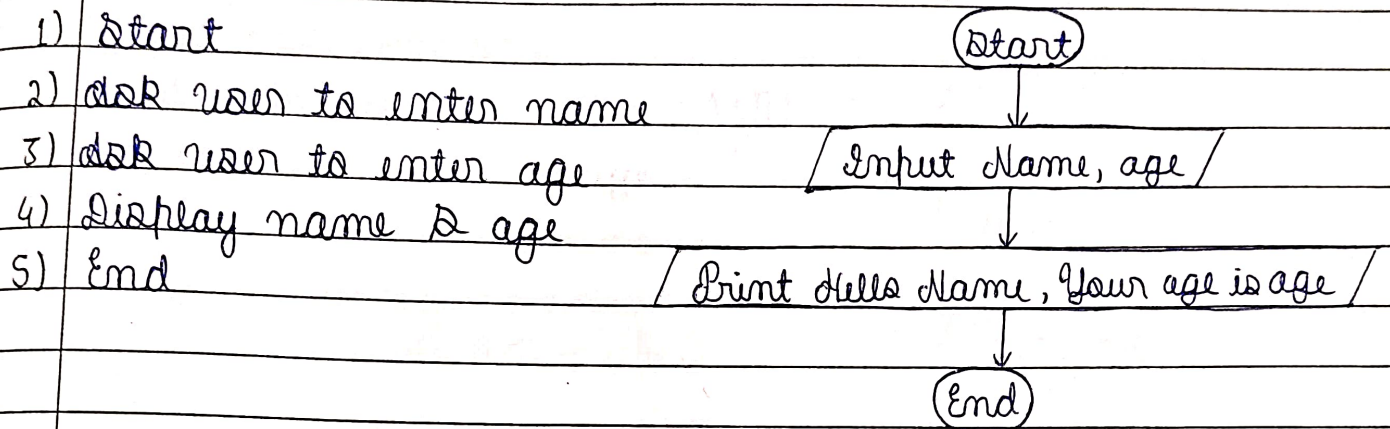 1) Start
2) Ask user to enter name
3) Ask user to enter age
4) Display name & age
5) End
Start
Input Name, age
Print Hello Name, Your age is age
End